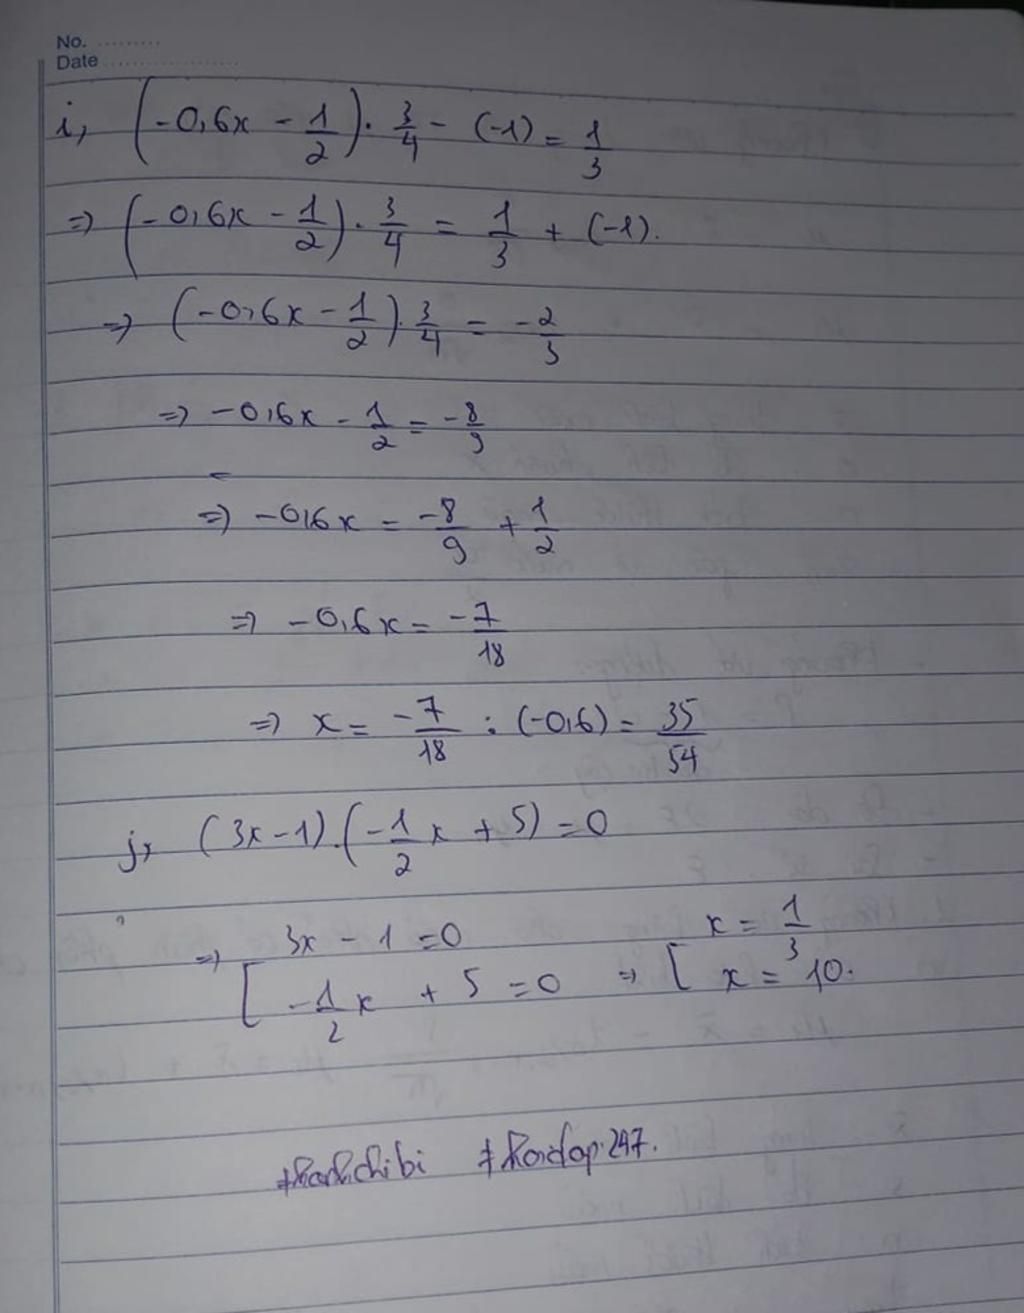 No. .........
Date ...................
i, (-0,6x - 1/2) . 3/4 - (-1) = 1/3
=> (-0,6x - 1/2) . 3/4 = 1/3 + (-1).
=> (-0,6x - 1/2) . 3/4 = -2/3
=> -0,6x - 1/2 = -8/9
=> -0,6x = -8/9 + 1/2
=> -0,6x = -7/18
=> x = -7/18 : (-0,6) = 35/54
j, (3x-1).(-1/2 x + 5) = 0
=> [ 3x - 1 = 0 => [ x = 1/3
-1/2 x + 5 = 0 x = 10.